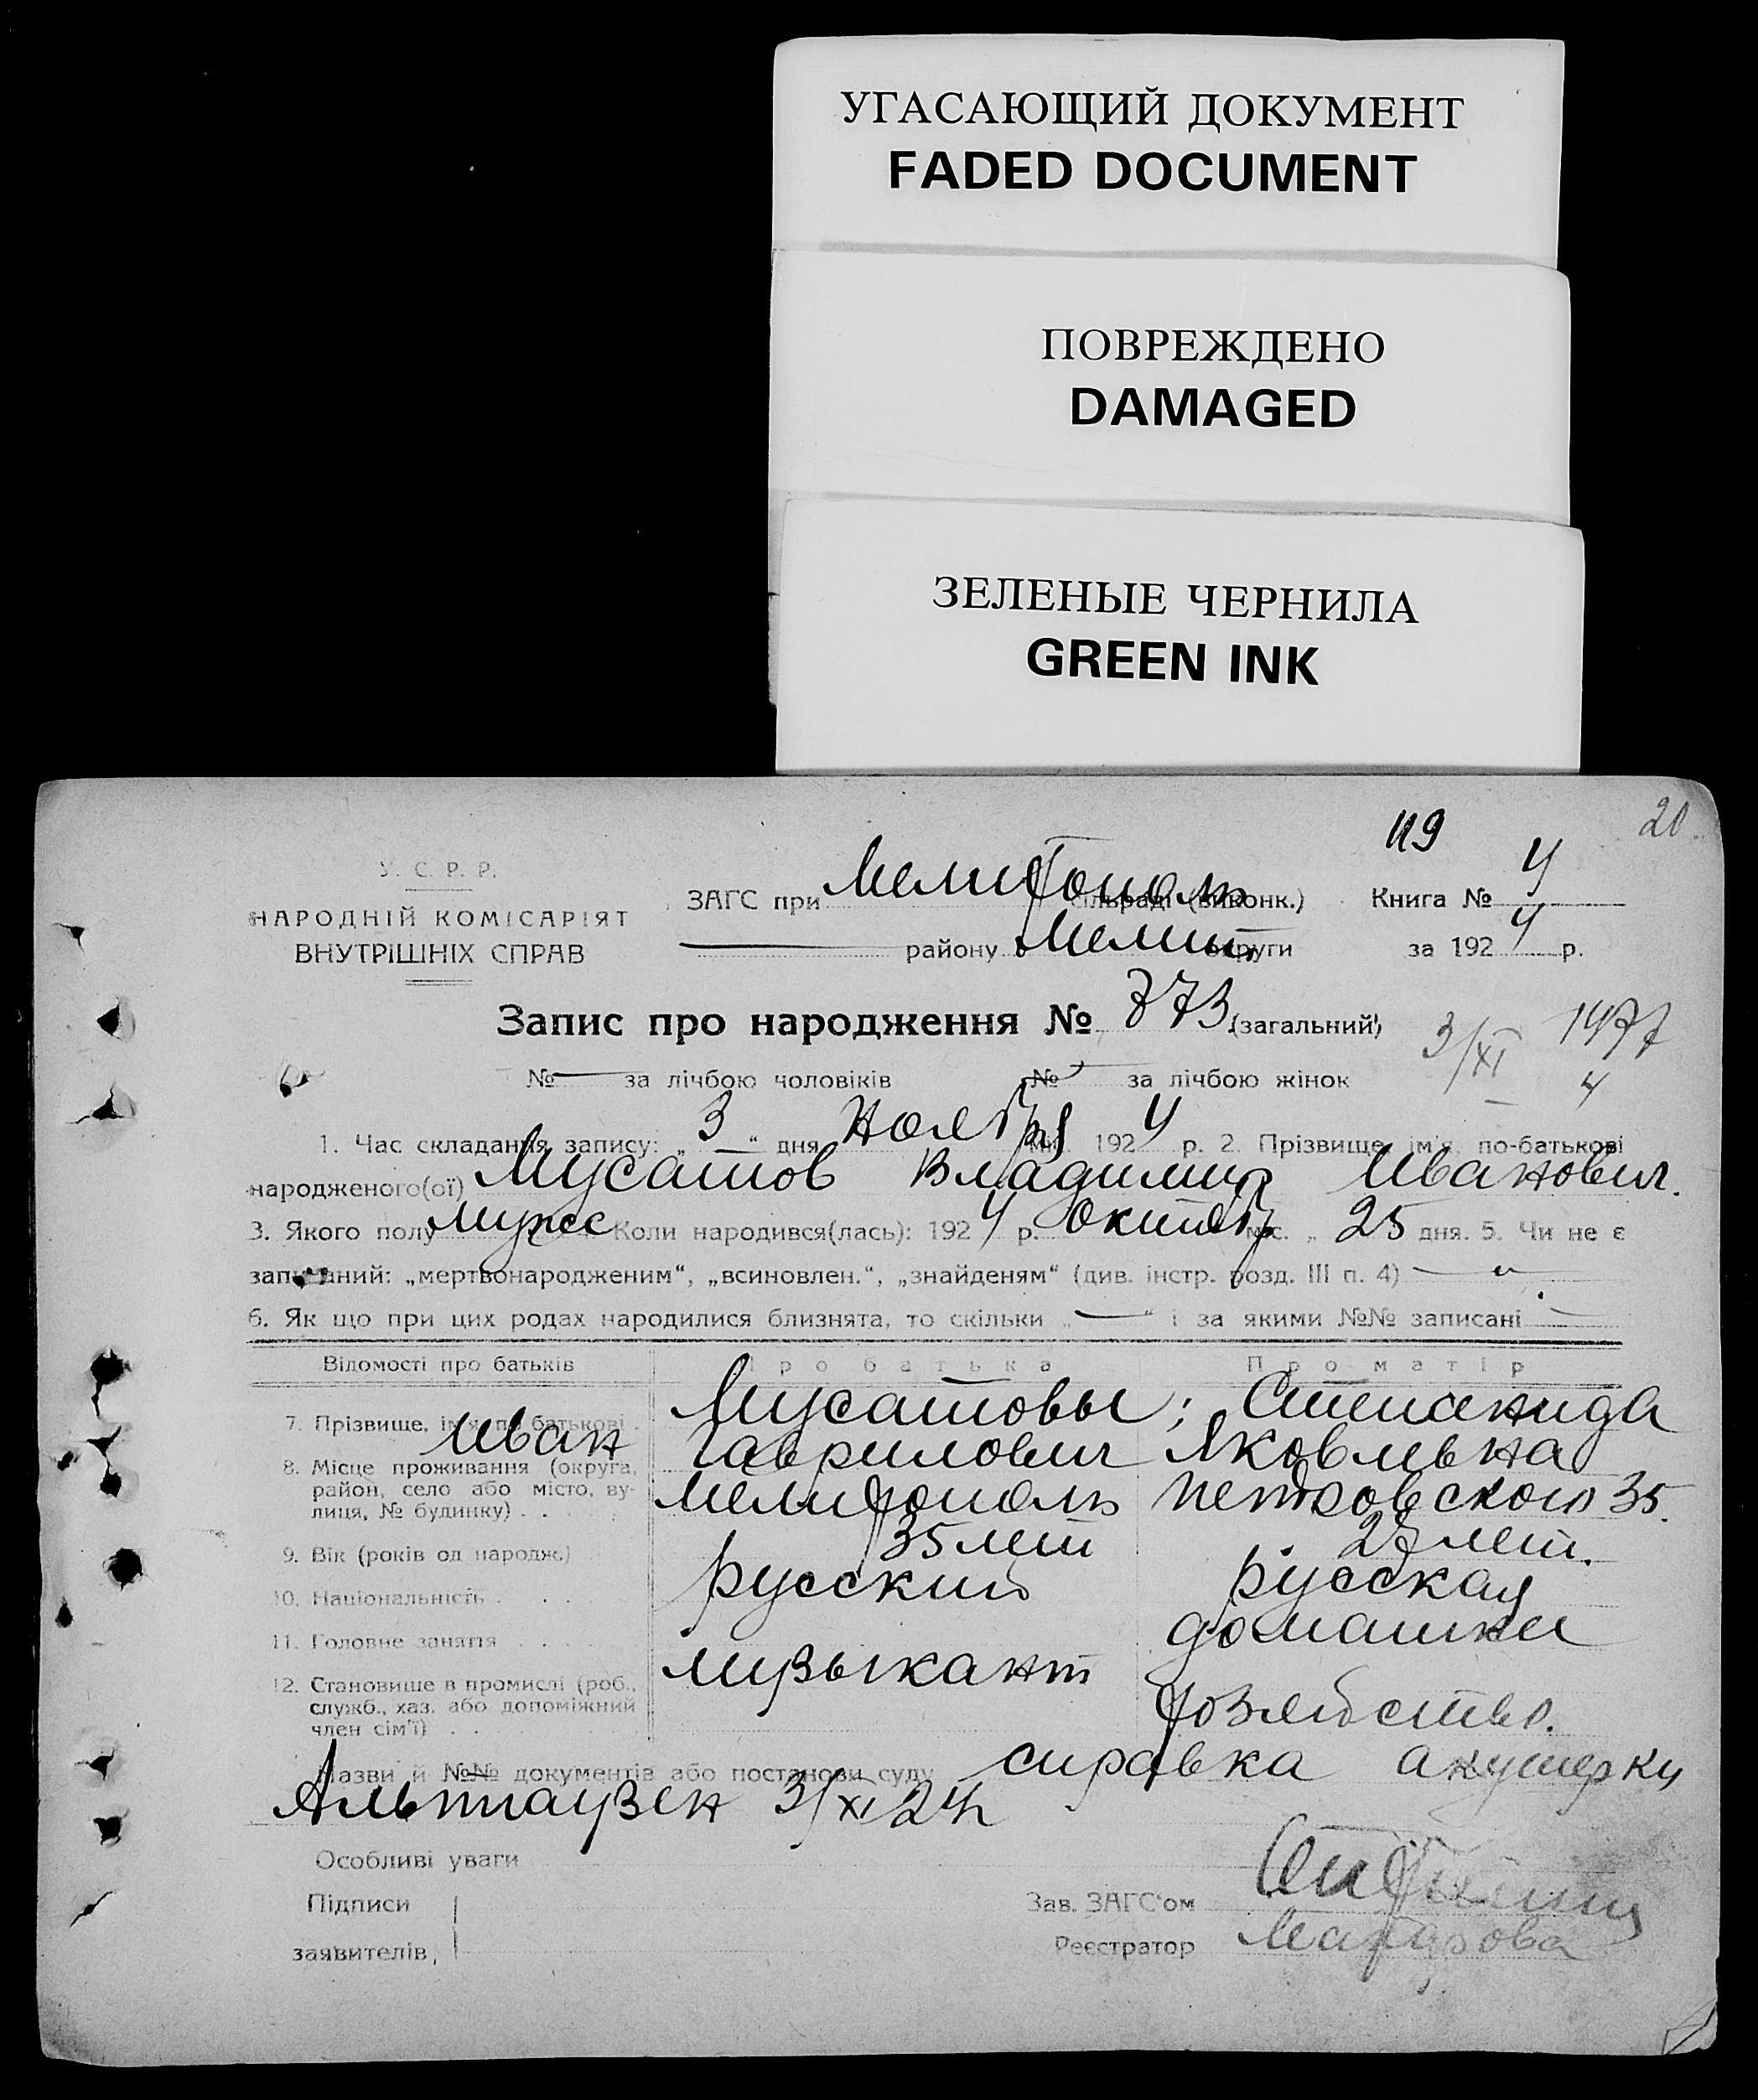 УГАСАЮЩИЙ ДОКУМЕНТ
FADED DOCUMENT
ПОВРЕЖДЕНО
DAMAGED
ЗЕЛЕНЫЕ ЧЕРНИЛА
GREEN INK
119 20
У. С. Р. Р.
НАРОДНІЙ КОМІСАРІЯТ
ВНУТРІШНІХ СПРАВ
ЗАГС при Мелитополь сільраді (виконк.) Книга № 4
району Мелит округи за 1924 р.
Запис про народження № 773 (загальний)
3/XI 1477
4
№ за лічбою чоловіків № за лічбою жінок
1. Час складання запису: „3“ дня Ноября міс. 1924 р. 2. Прізвище, ім'я, по-батькові
народженого(ої) Мусатов Владимир Иванович.
3. Якого полу мужс Коли народився(лась): 1924 р. Октябр міс. „25 дня. 5. Чи не є
записаний: „мертвонародженим“, „всиновлен.“, „знайденям“ (див. інстр. розд. III п. 4)
6. Як що при цих родах народилися близнята, то скільки „ “ і за якими №№ записані
Відомості про батьків Про батька Про матір
7. Прізвище, ім'я, по-батькові Мусатовы; Степанида
Иван Гаврилович Яковлевна
8. Місце проживання (округа,
район, село або місто, ву-
лиця, № будинку) Мелитополь Петровского 35.
9. Вік (років од народж.) 35 лет 27 лет.
10. Національність русский русская
11. Головне заняття музыкант домашнее
12. Становище в промислі (роб.,
служб., хаз. або допоміжний
член сім'ї) хозяйство.
Назви й №№ документів або постанови суду справка акушерки
Альтгаузен 3/XI 24
Особливі уваги
Підписи
заявителів,
Зав. ЗАГС'ом
Реєстратор